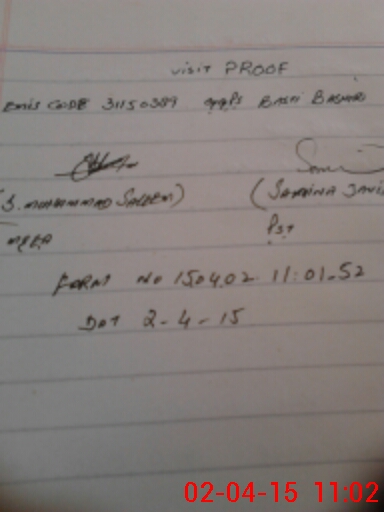 visit PROOF
Emis CODE 31150389 ggps BASTI
(S. MUHAMMAD SALEEM) (SAMINA
MEEA PST
FORM No 150402 11:01-52
DAT 2-4-15
02-04-15 11:02